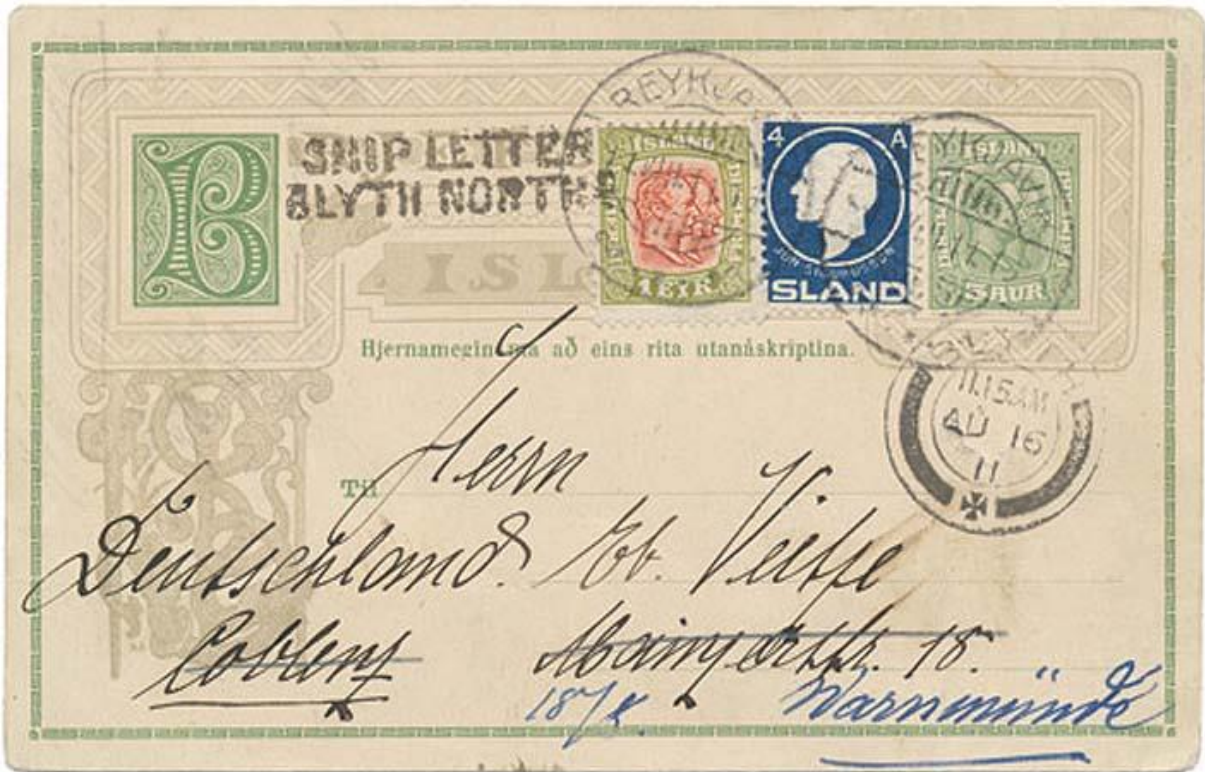 B
SHIP LETTER
BLYTH NORTH
REYKJAV
ISLAND
1 EYR
4 A
JÓN SIGURÐSSON
ISLAND
REYKJAVÍK
ISLAND
5 AUR
ISL
Hjernamegin má að eins rita utanáskriptina.
11.15AM
AU 16
11
Til
Herrn
Deutschland. Eb. Veitse
Coblenz Mainzerstr. 18.
18/8 Warnemünde